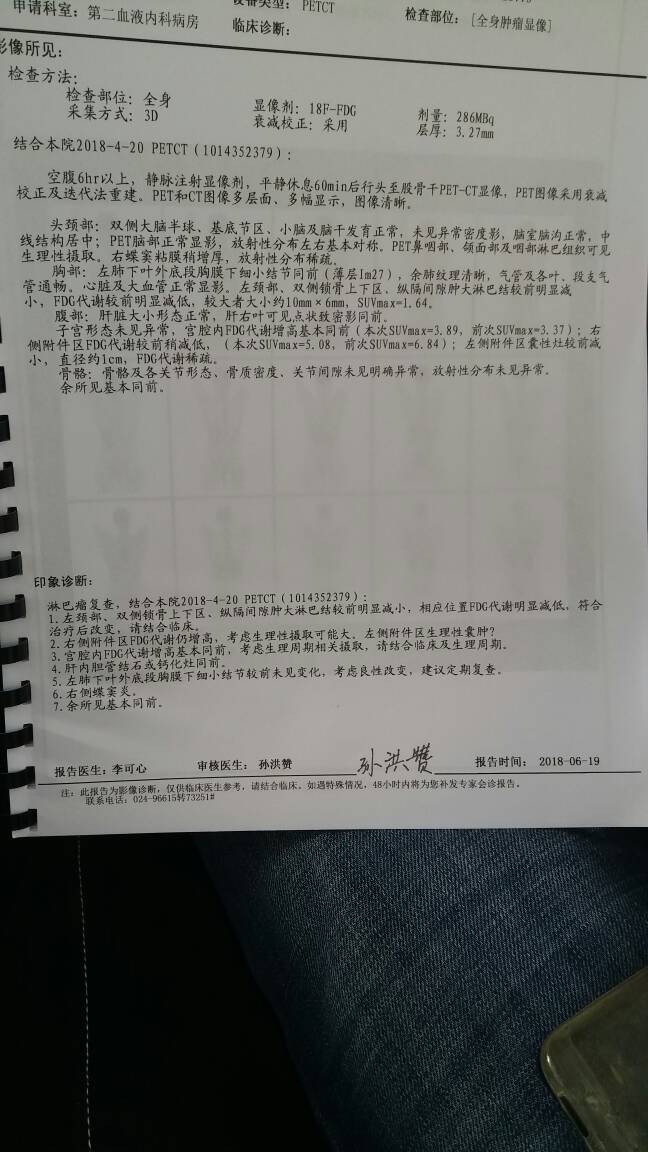 申请科室：第二血液内科病房
设备类型： PETCT
临床诊断：
检查部位：［全身肿瘤显像］
影像所见：
检查方法：
检查部位：全身
显像剂：18F-FDG
剂量：286MBq
采集方式：3D
衰减校正：采用
层厚：3.27mm
结合本院2018-4-20 PETCT（1014352379）：
空腹6hr以上，静脉注射显像剂，平静休息60min后行头至股骨干PET-CT显像，PET图像采用衰减
校正及迭代法重建。PET和CT图像多层面、多幅显示，图像清晰。
头颈部：双侧大脑半球、基底节区、小脑及脑干发育正常，未见异常密度影，脑室脑沟正常，中
线结构居中；PET脑部正常显影，放射性分布左右基本对称。PET鼻咽部、颌面部及咽部淋巴组织可见
生理性摄取。右蝶窦粘膜稍增厚，放射性分布稀疏。
胸部：左肺下叶外底段胸膜下细小结节同前（薄层Im27），余肺纹理清晰，气管及各叶、段支气
管通畅。心脏及大血管正常显影。左颈部、双侧锁骨上下区、纵隔间隙肿大淋巴结较前明显减
小，FDG代谢较前明显减低，较大者大小约10mm×6mm，SUVmax=1.64。
腹部：肝脏大小形态正常，肝右叶可见点状致密影同前。
子宫形态未见异常，宫腔内FDG代谢增高基本同前（本次SUVmax=3.89，前次SUVmax=3.37）；右
侧附件区FDG代谢较前稍减低，（本次SUVmax=5.08，前次SUVmax=6.84）；左侧附件区囊性灶较前减
小，直径约1cm，FDG代谢稀疏。
骨骼：骨骼及各关节形态、骨质密度、关节间隙未见明确异常，放射性分布未见异常。
余所见基本同前。
印象诊断：
淋巴瘤复查，结合本院2018-4-20 PETCT（1014352379）：
1.左颈部、双侧锁骨上下区、纵隔间隙肿大淋巴结较前明显减小，相应位置FDG代谢明显减低，符合
治疗后改变，请结合临床。
2.右侧附件区FDG代谢仍增高，考虑生理性摄取可能大。左侧附件区生理性囊肿？
3.宫腔内FDG代谢增高基本同前，考虑生理周期相关摄取，请结合临床及生理周期。
4.肝内胆管结石或钙化灶同前。
5.左肺下叶外底段胸膜下细小结节较前未见变化，考虑良性改变，建议定期复查。
6.右侧蝶窦炎。
7.余所见基本同前。
报告医生：李可心
审核医生： 孙洪赞
孙洪赞
报告时间： 2018-06-19
注：此报告为影像诊断，仅供临床医生参考，请结合临床。如遇特殊情况，48小时内将为您补发专家会诊报告。
联系电话：024-96615转73251#